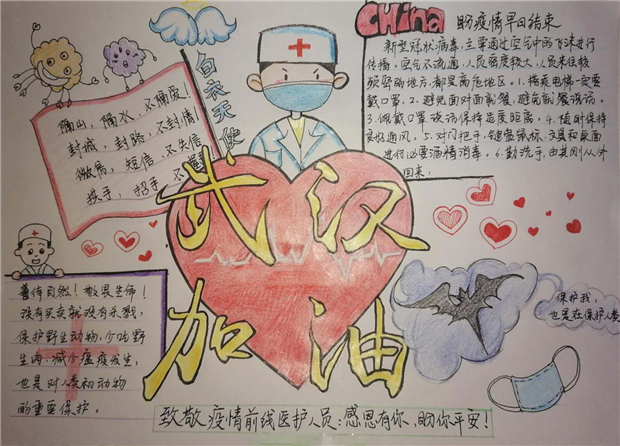 CHina 盼疫情早日结束
新型冠状病毒,主要通过空气中的飞沫进行
传播。空气不流通,人员密度较大,人员来往较
频密的地方,都是高危地区。1.搭乘电梯一定要
戴口罩。2.避免面对面就餐,避免就餐谈话。
3.佩戴口罩,谈话保持适度距离。4.随时保持
良好通风。5.对门把手、键盘鼠标、文具和桌面
进行必要酒精消毒。6.勤洗手,由其刚从外
回来。
白衣天使
隔山,隔水,不隔爱!
封城,封路,不封情!
微信,短信,不失信
换手,招手,不
武汉
加油
善待自然!敬畏生命!
没有买卖就没有杀戮,
保护野生动物,少吃野
生肉,减少瘟疫发生,
也是对人类和动物
的重要保护。
保护我,
也是在保护人类
致敬疫情前线医护人员:感恩有你,盼你平安!